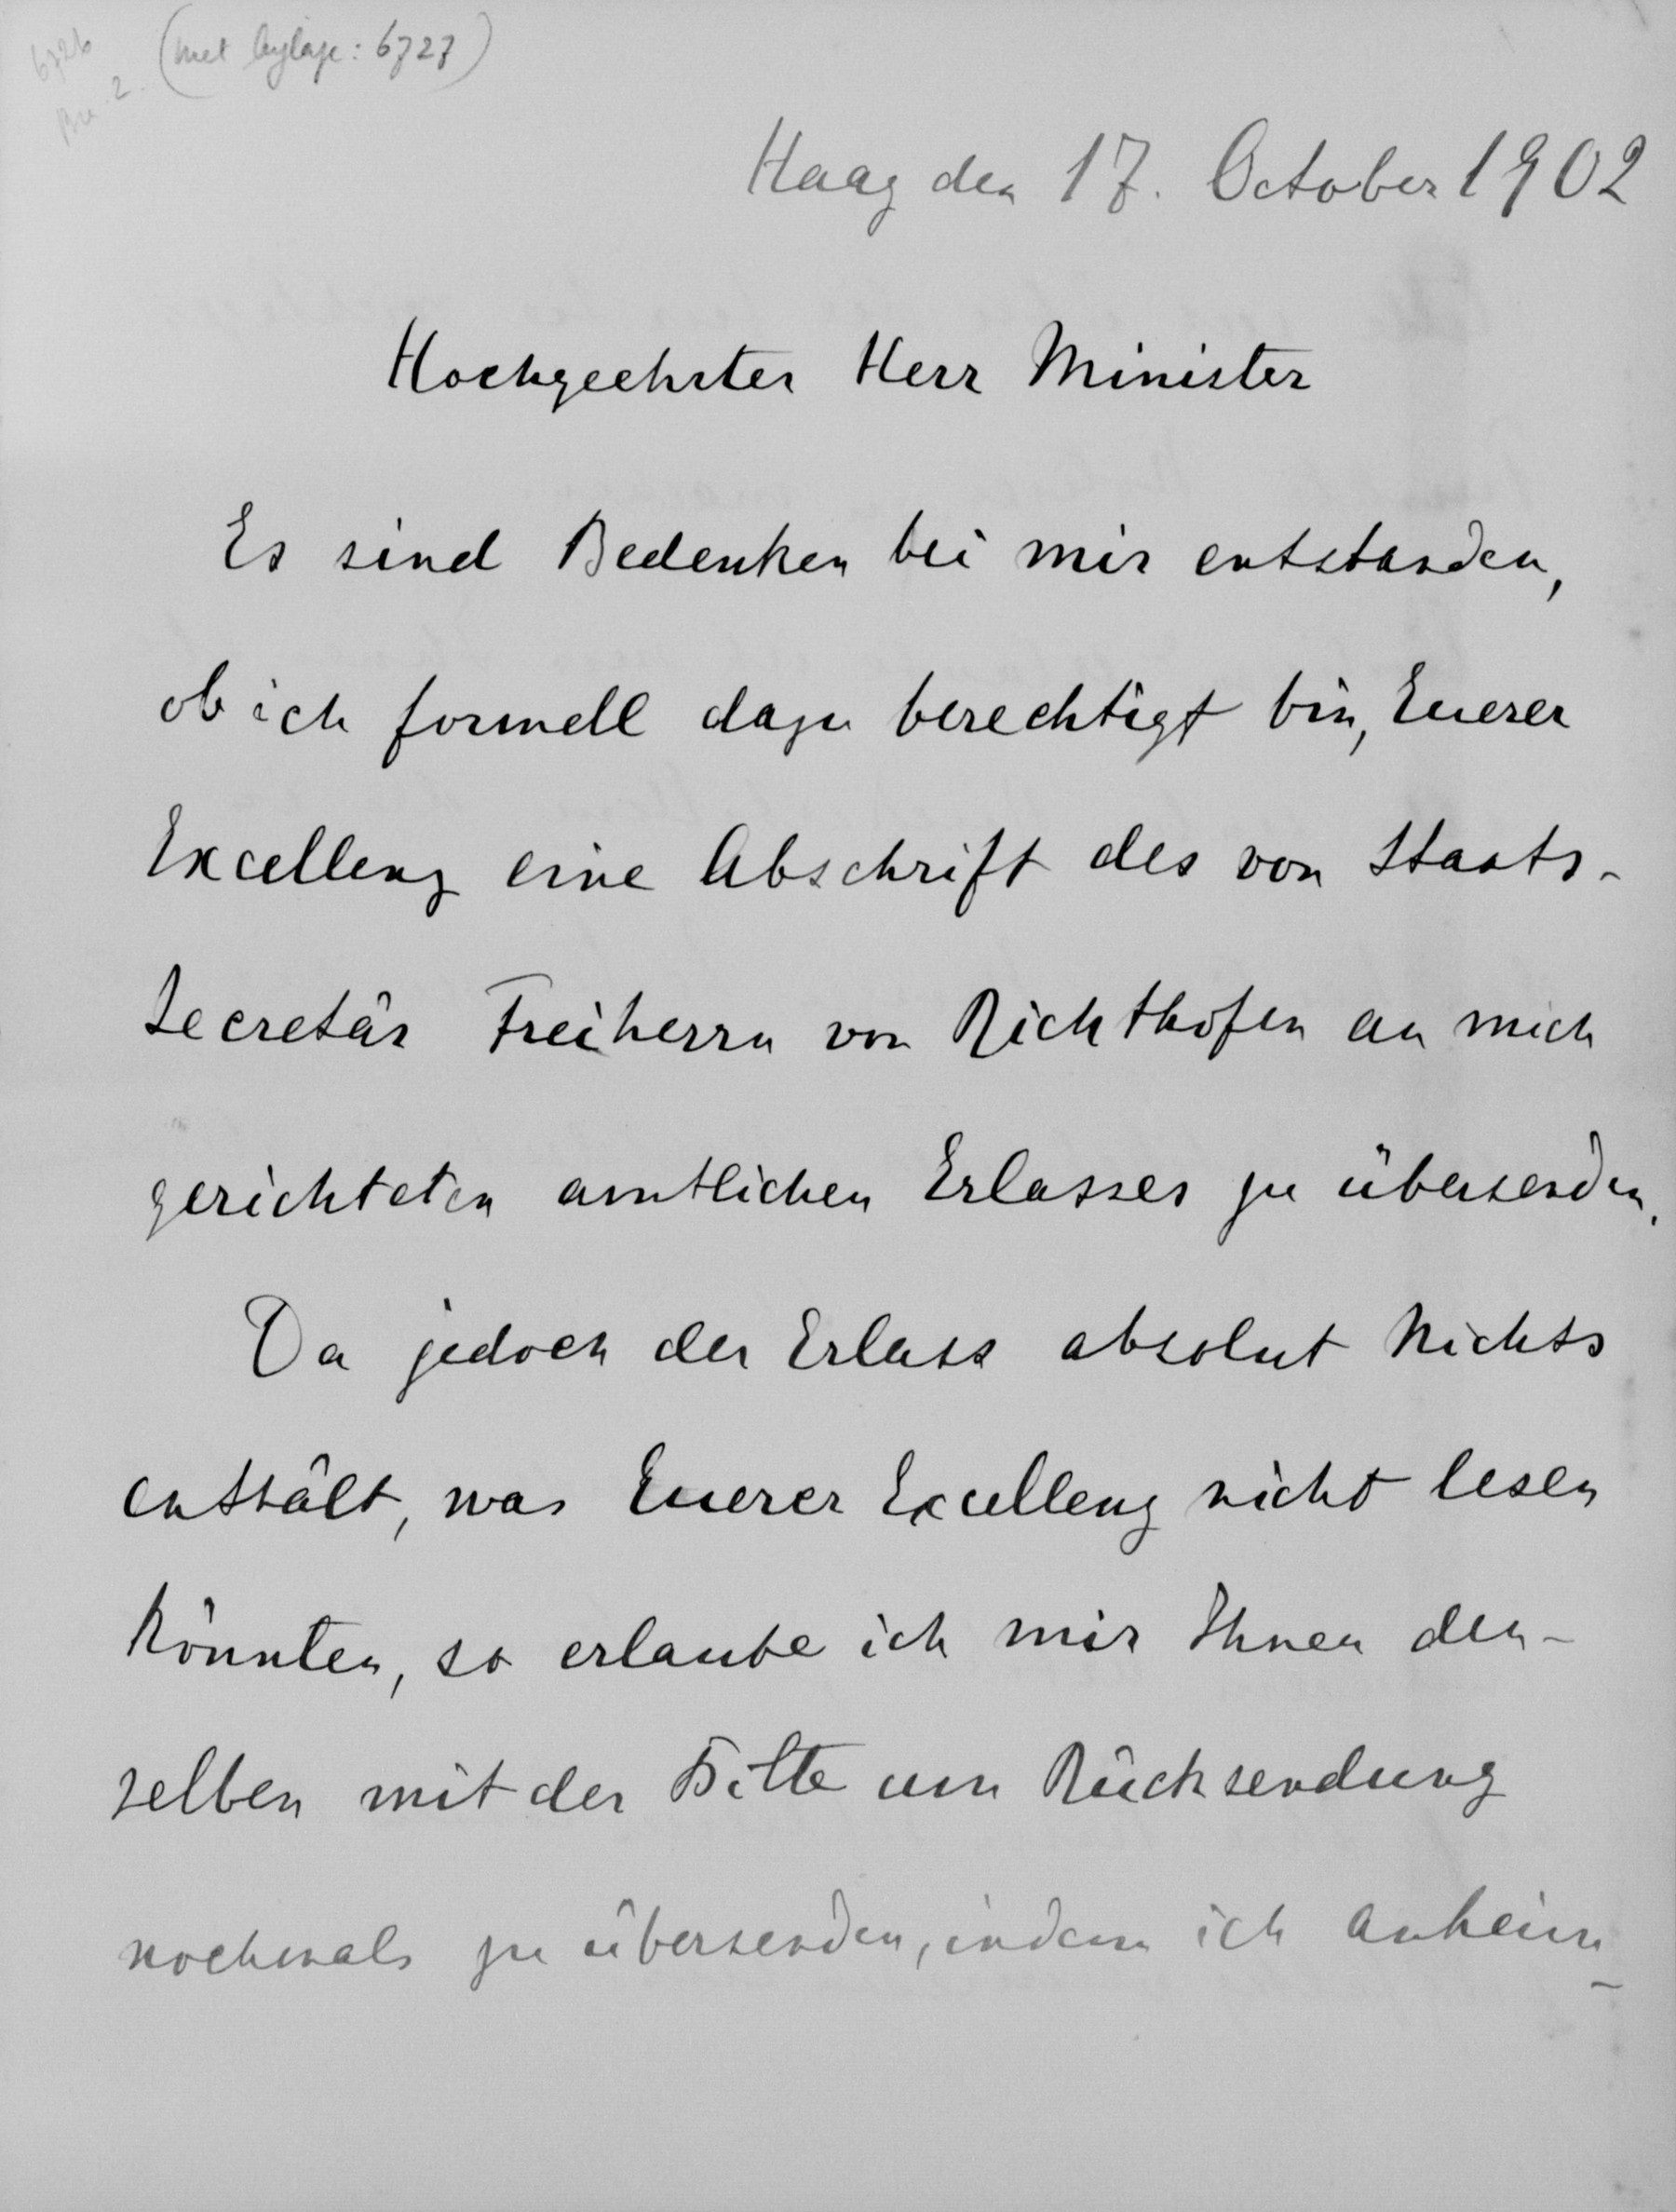 6726 (met bijlage: 6727)
2.
Haag den 17. October 1902
Hochgeehrter Herr Minister
Es sind Bedenken bei mir entstanden,
ob ich formell dazu berechtigt bin, Euerer
Excellenz eine Abschrift des von Staats-
Secretär Freiherrn von Richthofen an mich
gerichteten amtlichen Erlasses zu übersenden.
Da jedoch der Erlass absolut Nichts
enthält, was Euerer Excellenz nicht lesen
könnten, so erlaube ich mir Ihnen den-
selben mit der Bitte um Rücksendung
nochmals zu übersenden, indem ich anheim-